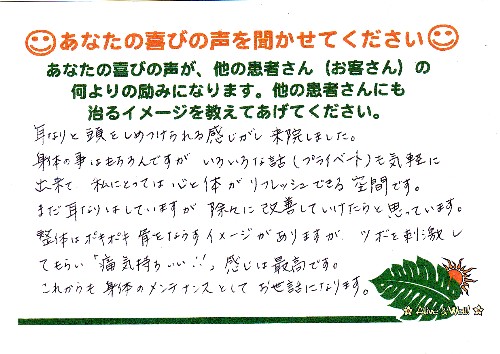 あなたの喜びの声を聞かせてください
あなたの喜びの声が、他の患者さん（お客さん）の
何よりの励みになります。他の患者さんにも
治るイメージを教えてあげてください。
耳なりと頭をしめつけられる感じがし来院しました。
身体の事はもちろんですが いろいろな話（プライベート）も気軽に
出来て 私にとっては心と体がリフレッシュできる空間です。
まだ耳なりはしていますが 除々に改善していけたらと思っています。
整体はボキボキ骨をならすイメージがありますが、ツボを刺激し
てもらい「痛気持ちいい!!」感じは最高です。
これからも身体のメンテナンスとしてお世話になります。
☆ Alive & Well ☆